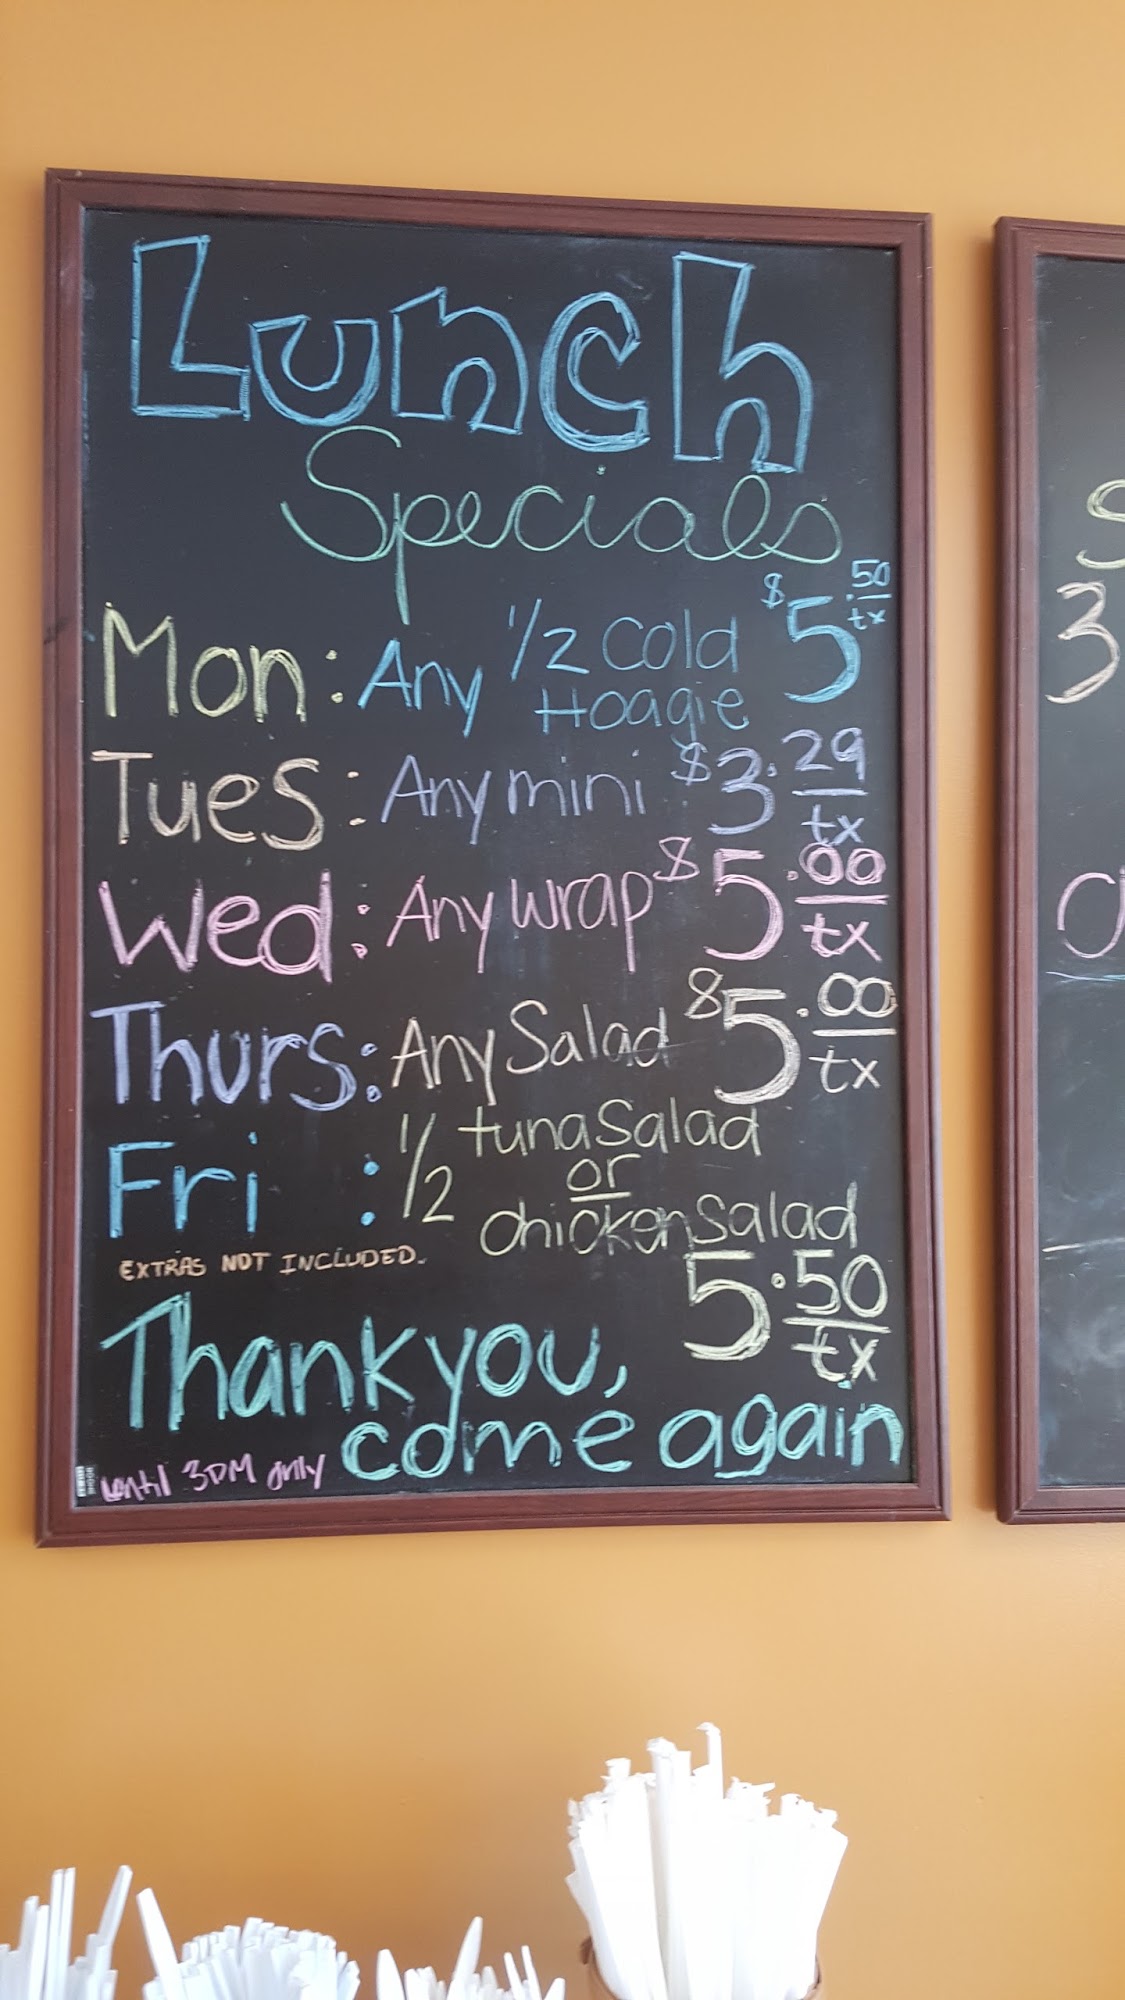 Lunch
Specials
Mon: Any 1/2 Cold Hoagie $5.50 tx
Tues: Any mini $3.29 tx
Wed: Any wrap $5.00 tx
Thurs: Any Salad $5.00 tx
Fri : 1/2 tuna Salad or chicken Salad
EXTRAS NOT INCLUDED.
5.50 tx
Thank you,
come again
until 3PM only
3